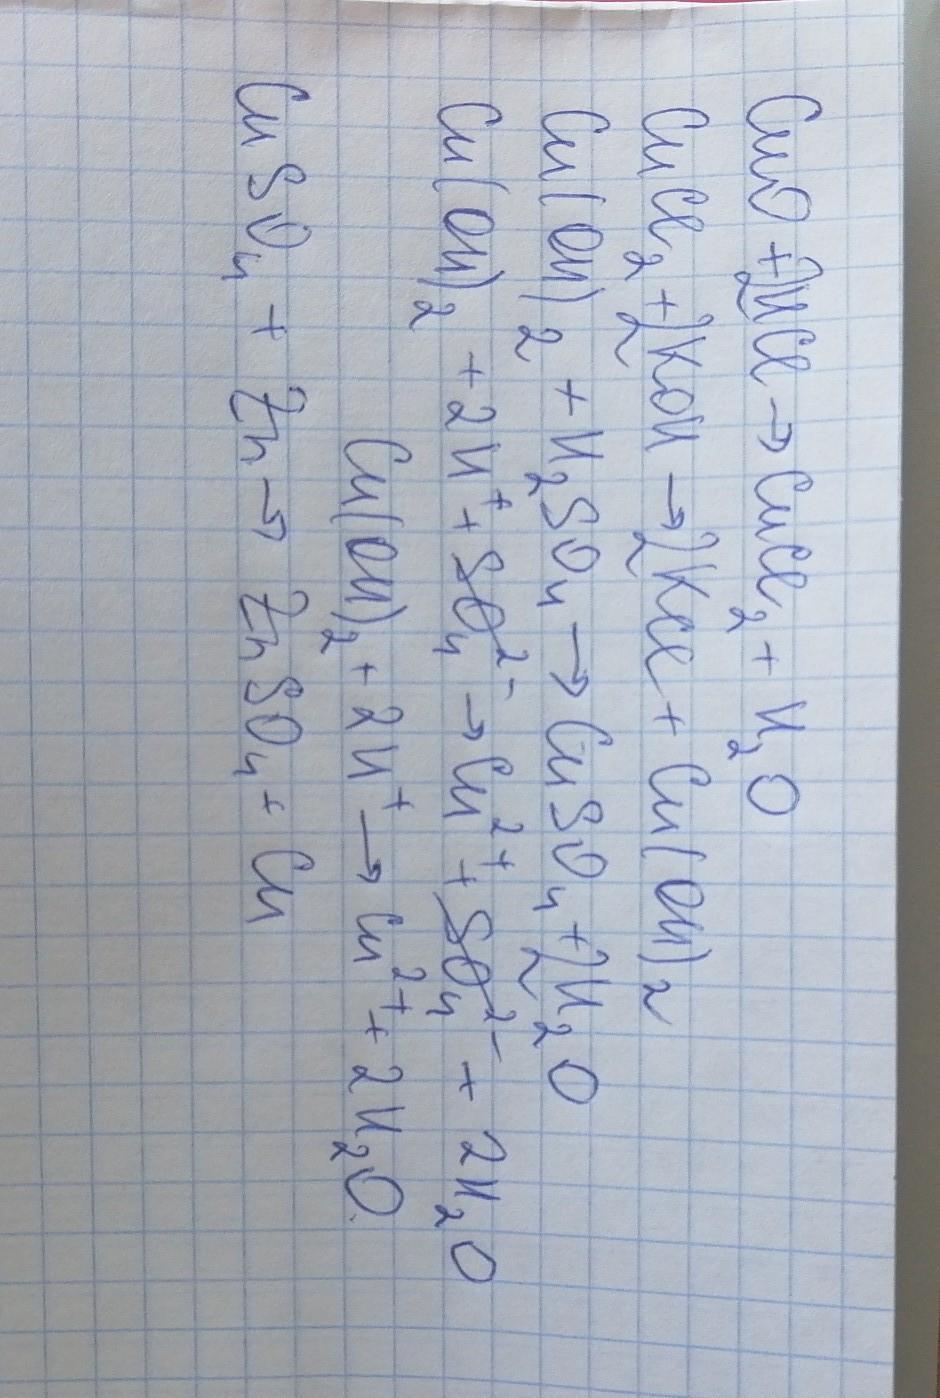 CuO + 2HCl → CuCl₂ + H₂O
CuCl₂ + 2KOH → 2KCl + Cu(OH)₂
Cu(OH)₂ + H₂SO₄ → CuSO₄ + 2H₂O
Cu(OH)₂ + 2H⁺ + SO₄²⁻ → Cu²⁺ + SO₄²⁻ + 2H₂O
Cu(OH)₂ + 2H⁺ → Cu²⁺ + 2H₂O
CuSO₄ + Zn → ZnSO₄ + Cu